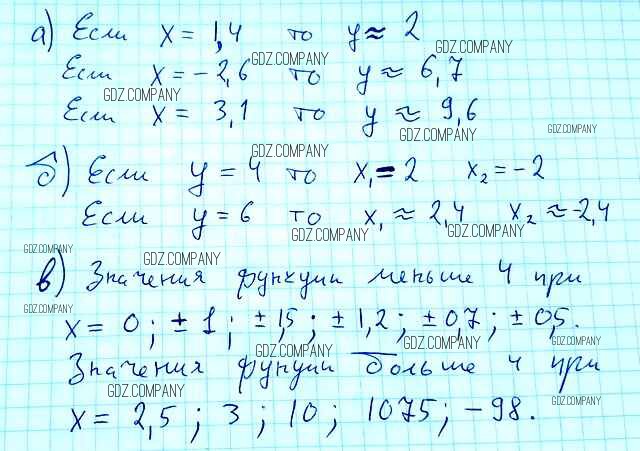 а) Если x = 1,4 то y ≈ 2
GDZ.COMPANY
GDZ.COMPANY
Если x = -2,6 то y ≈ 6,7
GDZ.COMPANY
GDZ.COMPANY
Если x = 3,1 то y ≈ 9,6
GDZ.COMPANY
GDZ.COMPANY
GDZ.COMPANY
б) Если y = 4 то x₁ = 2 x₂ = -2
GDZ.COMPANY
Если y = 6 то x₁ ≈ 2,4 x₂ ≈ -2,4
GDZ.COMPANY
GDZ.COMPANY
GDZ.COMPANY
GDZ.COMPANY
в) Значения функции меньше 4 при
GDZ.COMPANY
x = 0; ± 1; ± 1,5; ± 1,2; ± 0,7; ± 0,5.
GDZ.COMPANY
GDZ.COMPANY
GDZ.COMPANY
Значения функции больше 4 при
GDZ.COMPANY
GDZ.COMPANY
x = 2,5; 3; 10; 1075; -98.